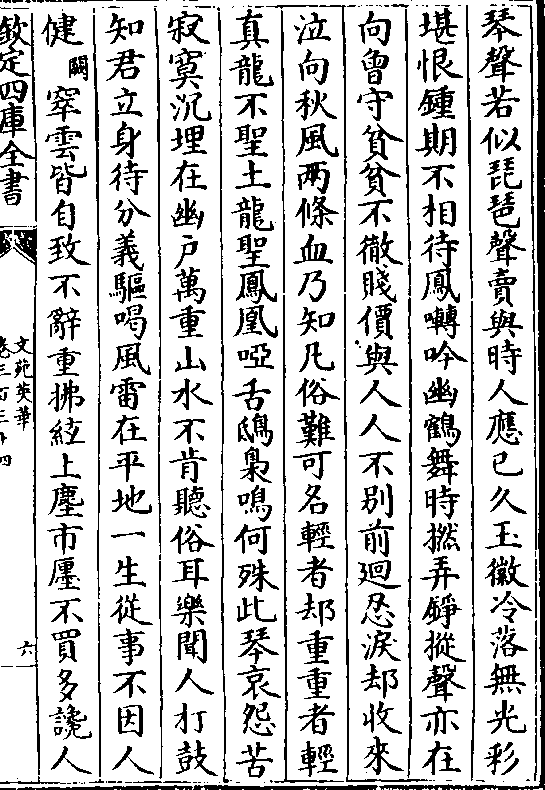 琴聲若似琵琶聲賣與時人應已久玉徽冷落無光彩
堪恨鍾期不相待鳳囀吟幽鶴舞時撚弄錚摐聲亦在
向曾守貧貧不徹賤價與人人不別前廻忍淚却收來
泣向秋風兩條血乃知凡俗難可名輕者却重重者輕
真龍不聖土龍聖鳳凰啞舌鴟梟鳴何殊此琴哀怨苦
寂寞沉埋在幽户萬重山水不肯聽俗耳樂聞人打鼓
知君立身待分義驅喝風雷在平地一生從事不因人
健闕窣雲皆自致不辭重拂絃上塵市廛不買多讒人
欽定四庫全書
文苑英華
卷三百三十四
六